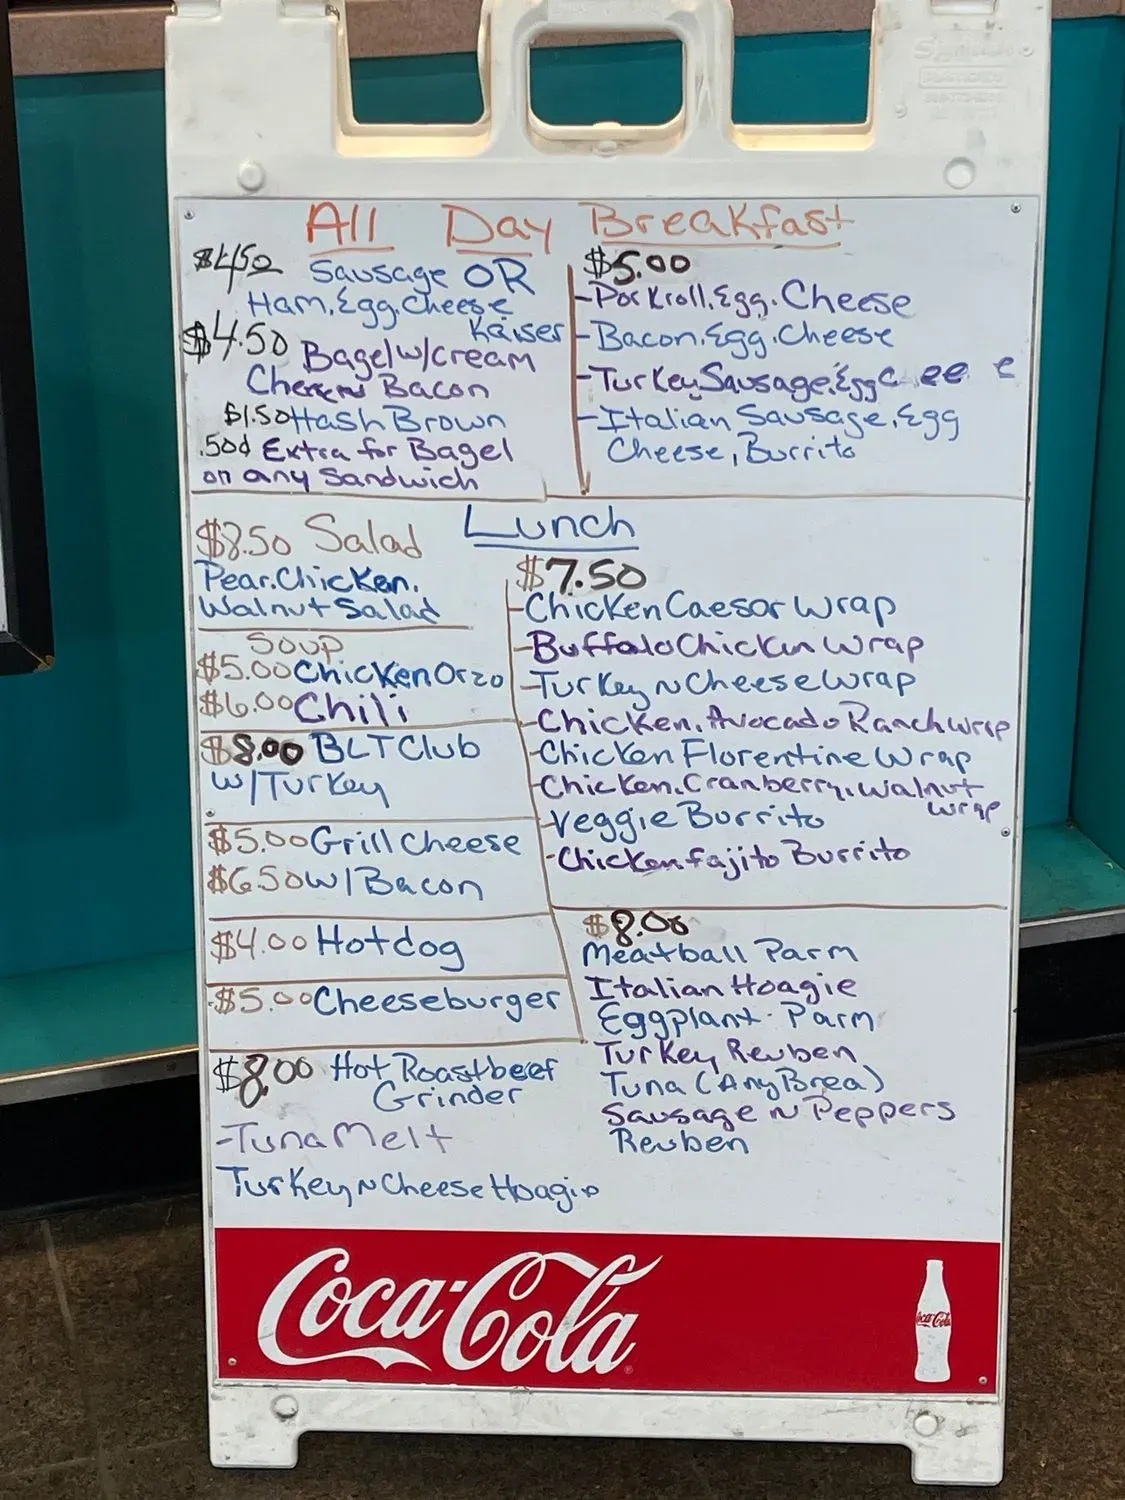 All Day Breakfast
$4.50 Sausage OR
Ham, Egg, Cheese
Kaiser
$4.50 Bagel w/cream
Bacon
$1.50 Hash Brown
.50¢ Extra for Bagel
on any Sandwich
$5.00
-Porkroll, Egg, Cheese
-Bacon, Egg, Cheese
-Turkey Sausage, Egg C ee e
-Italian Sausage, Egg
Cheese, Burrito
Lunch
$8.50 Salad
Pear, Chicken,
Walnut Salad
Soup
$5.00 Chicken Orzo
$6.00 Chili
$8.00 BLT Club
w/Turkey
$5.00 Grill Cheese
$6.50 w/Bacon
$4.00 Hotdog
-$5.00 Cheeseburger
$8.00 Hot Roastbeef
Grinder
-Tuna Melt
Turkey n Cheese Hoagie
$7.50
-Chicken Caesar Wrap
-Buffalo Chicken Wrap
-Turkey n Cheese Wrap
-Chicken, Avocado Ranch wrap
-Chicken Florentine Wrap
-Chicken, Cranberry, walnut
wrap
-Veggie Burrito
-Chicken fajito Burrito
$8.00
Meatball Parm
Italian Hoagie
Eggplant Parm
Turkey Reuben
Tuna (Any Brea)
Sausage n Peppers
Reuben
Coca-Cola
Coca-Cola